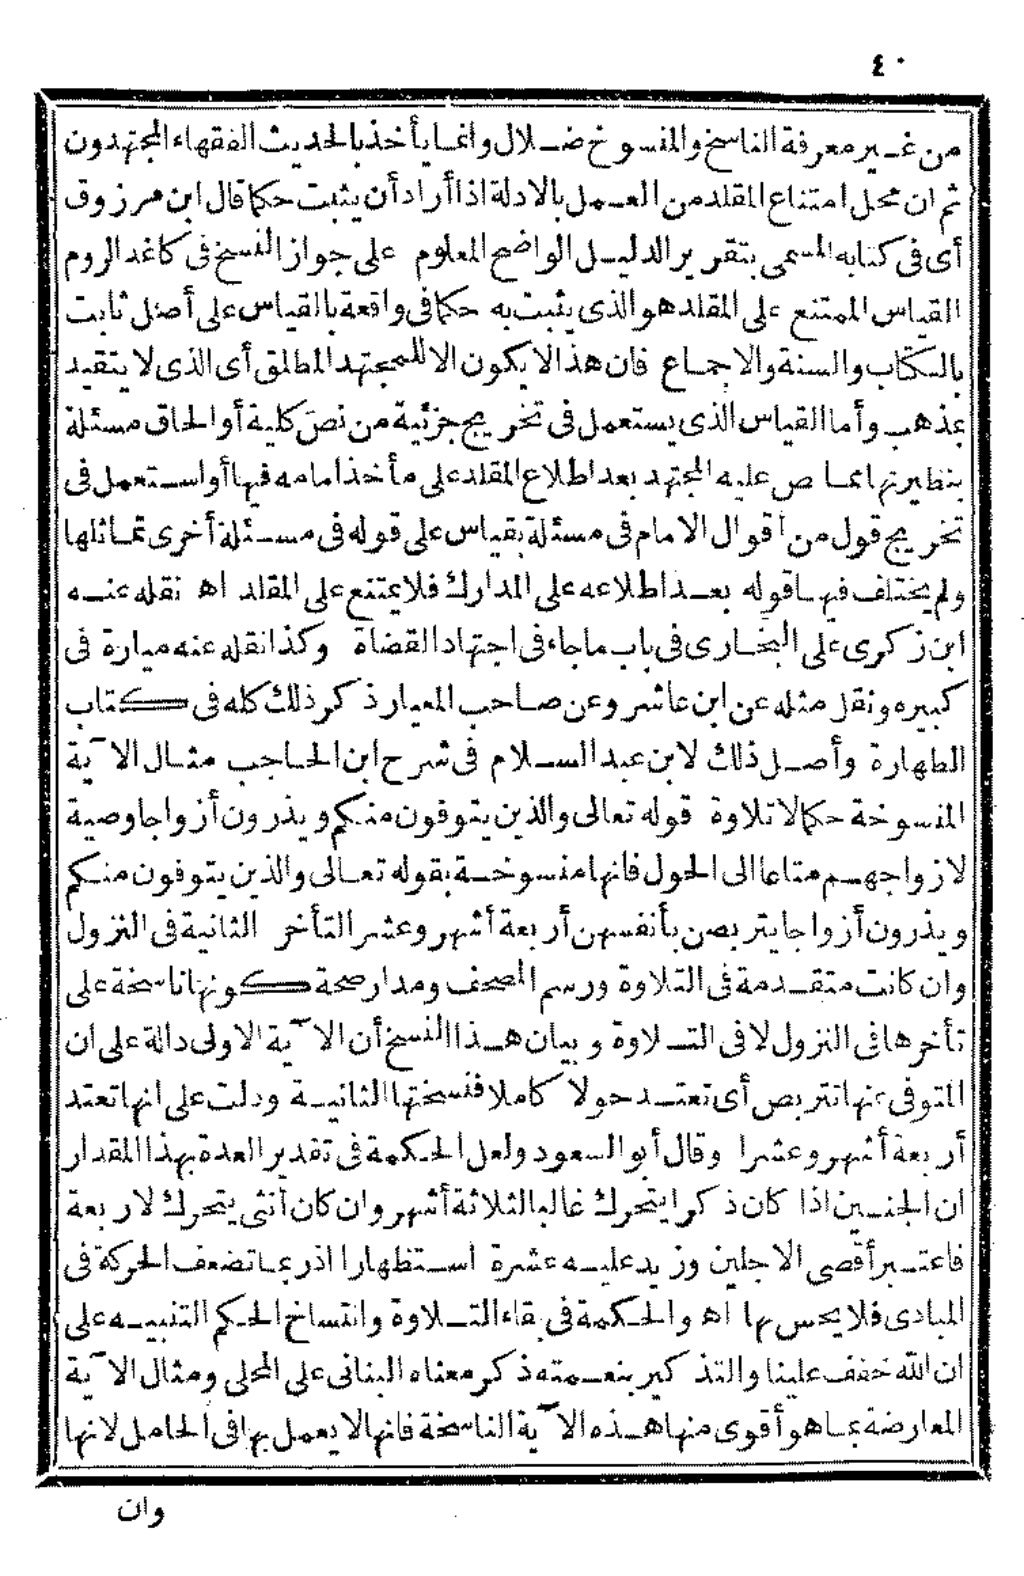 ٤٠
من غير معرفة الناسخ والمنسوخ ضلال وانما يأخذ بالحديث الفقهاء المجتهدون
ثم ان محل امتناع المقلد من العمل بالادلة اذا أراد أن يثبت حكما قال ابن مرزوق
أى فى كتابه المسمى بتقرير الدليل الواضح المعلوم على جواز النسخ فى كاغد الروم
القياس الممتنع على المقلد هو الذى يثبت به حكما فى واقعة بالقياس على أصل ثابت
بالكتاب والسنة والاجماع فان هذا لا يكون الا للمجتهد المطلق أى الذى لا يتقيد
بمذهب وأما القياس الذى يستعمل فى تخريج جزئية من نص كلية أو الحاق مسئلة
بنظيرتها مما ص عليه المجتهد بعد اطلاع المقلد على مأخذ امامه فيها أو استعمل فى
تخريج قول من أقوال الامام فى مسئلة بقياس على قوله فى مسئلة أخرى تماثلها
ولم يختلف فيها قوله بعد اطلاعه على المدارك فلا يمتنع على المقلد اه نقله عنه
ابن زكرى على البخارى فى باب ما جاء فى اجتهاد القضاة وكذا نقله عنه ميارة فى
كبيره ونقل مثله عن ابن عاشر وعن صاحب المعيار ذكر ذلك كله فى كتاب
الطهارة وأصل ذلك لابن عبد السلام فى شرح ابن الحاجب مثال الآية
المنسوخة حكما لا تلاوة قوله تعالى والذين يتوفون منكم ويذرون أزواجا وصية
لازواجهم متاعا الى الحول فانها منسوخة بقوله تعالى والذين يتوفون منكم
ويذرون أزواجا يتربصن بأنفسهن أربعة أشهر وعشر التأخر الثانية فى النزول
وان كانت متقدمة فى التلاوة ورسم المصحف ومدار صحة كونها ناسخة على
تأخرها فى النزول لا فى التلاوة وبيان هذا النسخ أن الآية الاولى دالة على ان
المتوفى عنها تتربص أى تعتد حولا كاملا فنسختها الثانية ودلت على انها تعتد
أربعة أشهر وعشرا وقال أبو السعود ولعل الحكمة فى تقدير العدة بهذا المقدار
ان الجنين اذا كان ذكرا يتحرك غالبا لثلاثة أشهر وان كان أنثى يتحرك لاربعة
فاعتبر أقصى الاجلين وزيد عليه عشرة استظهارا اذ ربما تضعف الحركة فى
المبادى فلا يحس بها اه والحكمة فى بقاء التلاوة وانتساخ الحكم التنبيه على
ان الله خفف علينا والتذكير بنعمته ذكر معناه البنانى على المحلى ومثال الآية
المعارضة بما هو أقوى منها هذه الآية الناسخة فانها لا يعمل بها فى الحامل لانها
وان